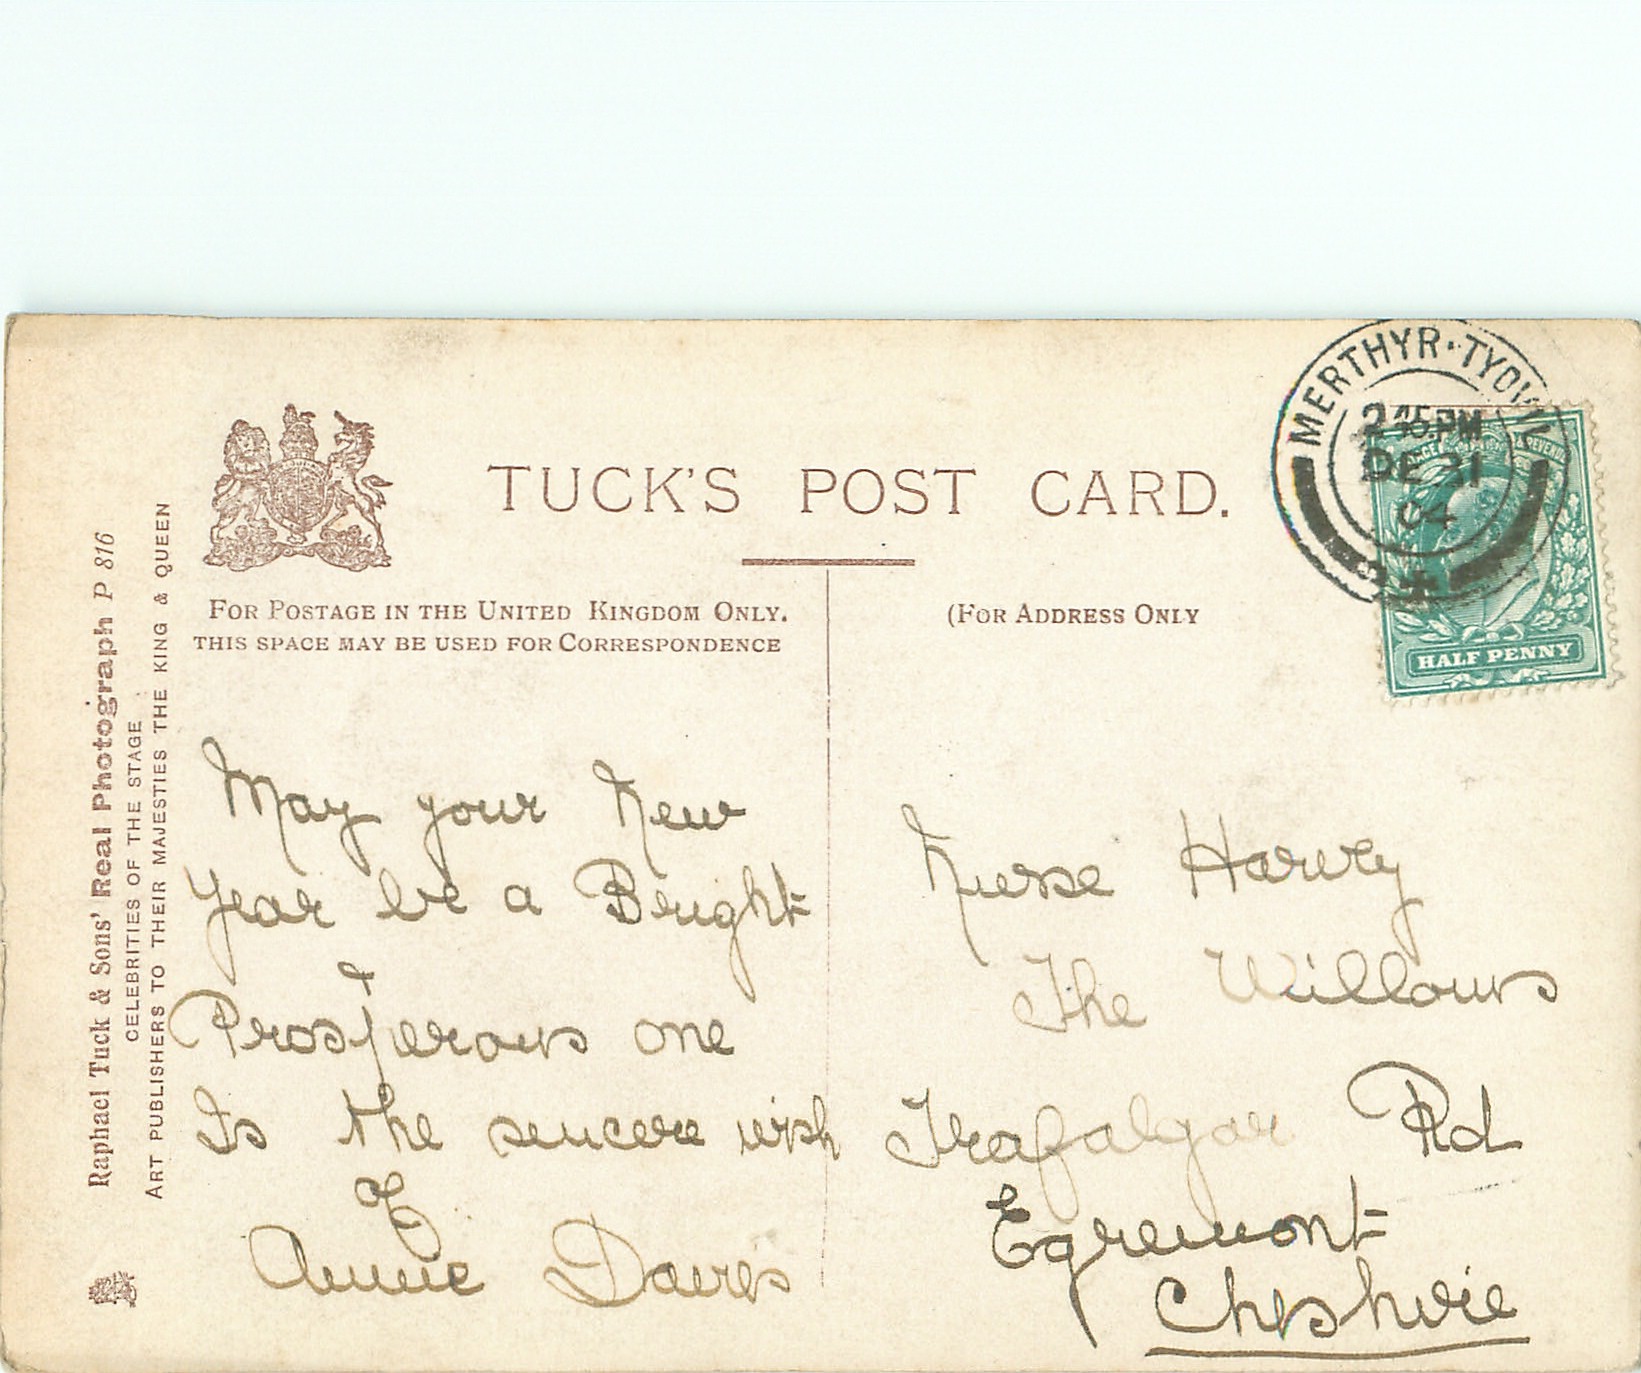 TUCK'S POST CARD.
FOR POSTAGE IN THE UNITED KINGDOM ONLY.
THIS SPACE MAY BE USED FOR CORRESPONDENCE
(FOR ADDRESS ONLY
MERTHYR·TYDFIL
2 45.PM
DE 21
04
POSTAGE & REVENUE
HALF PENNY
Raphael Tuck & Sons' "Real Photograph P 816
CELEBRITIES OF THE STAGE
ART PUBLISHERS TO THEIR MAJESTIES THE KING & QUEEN
May your New
Year be a Bright
& Prosperous one
Is the sincere wish
of
Annie Davies
Nurse Harvey
The Willows
Trafalgar Rd
Egremont
Cheshire